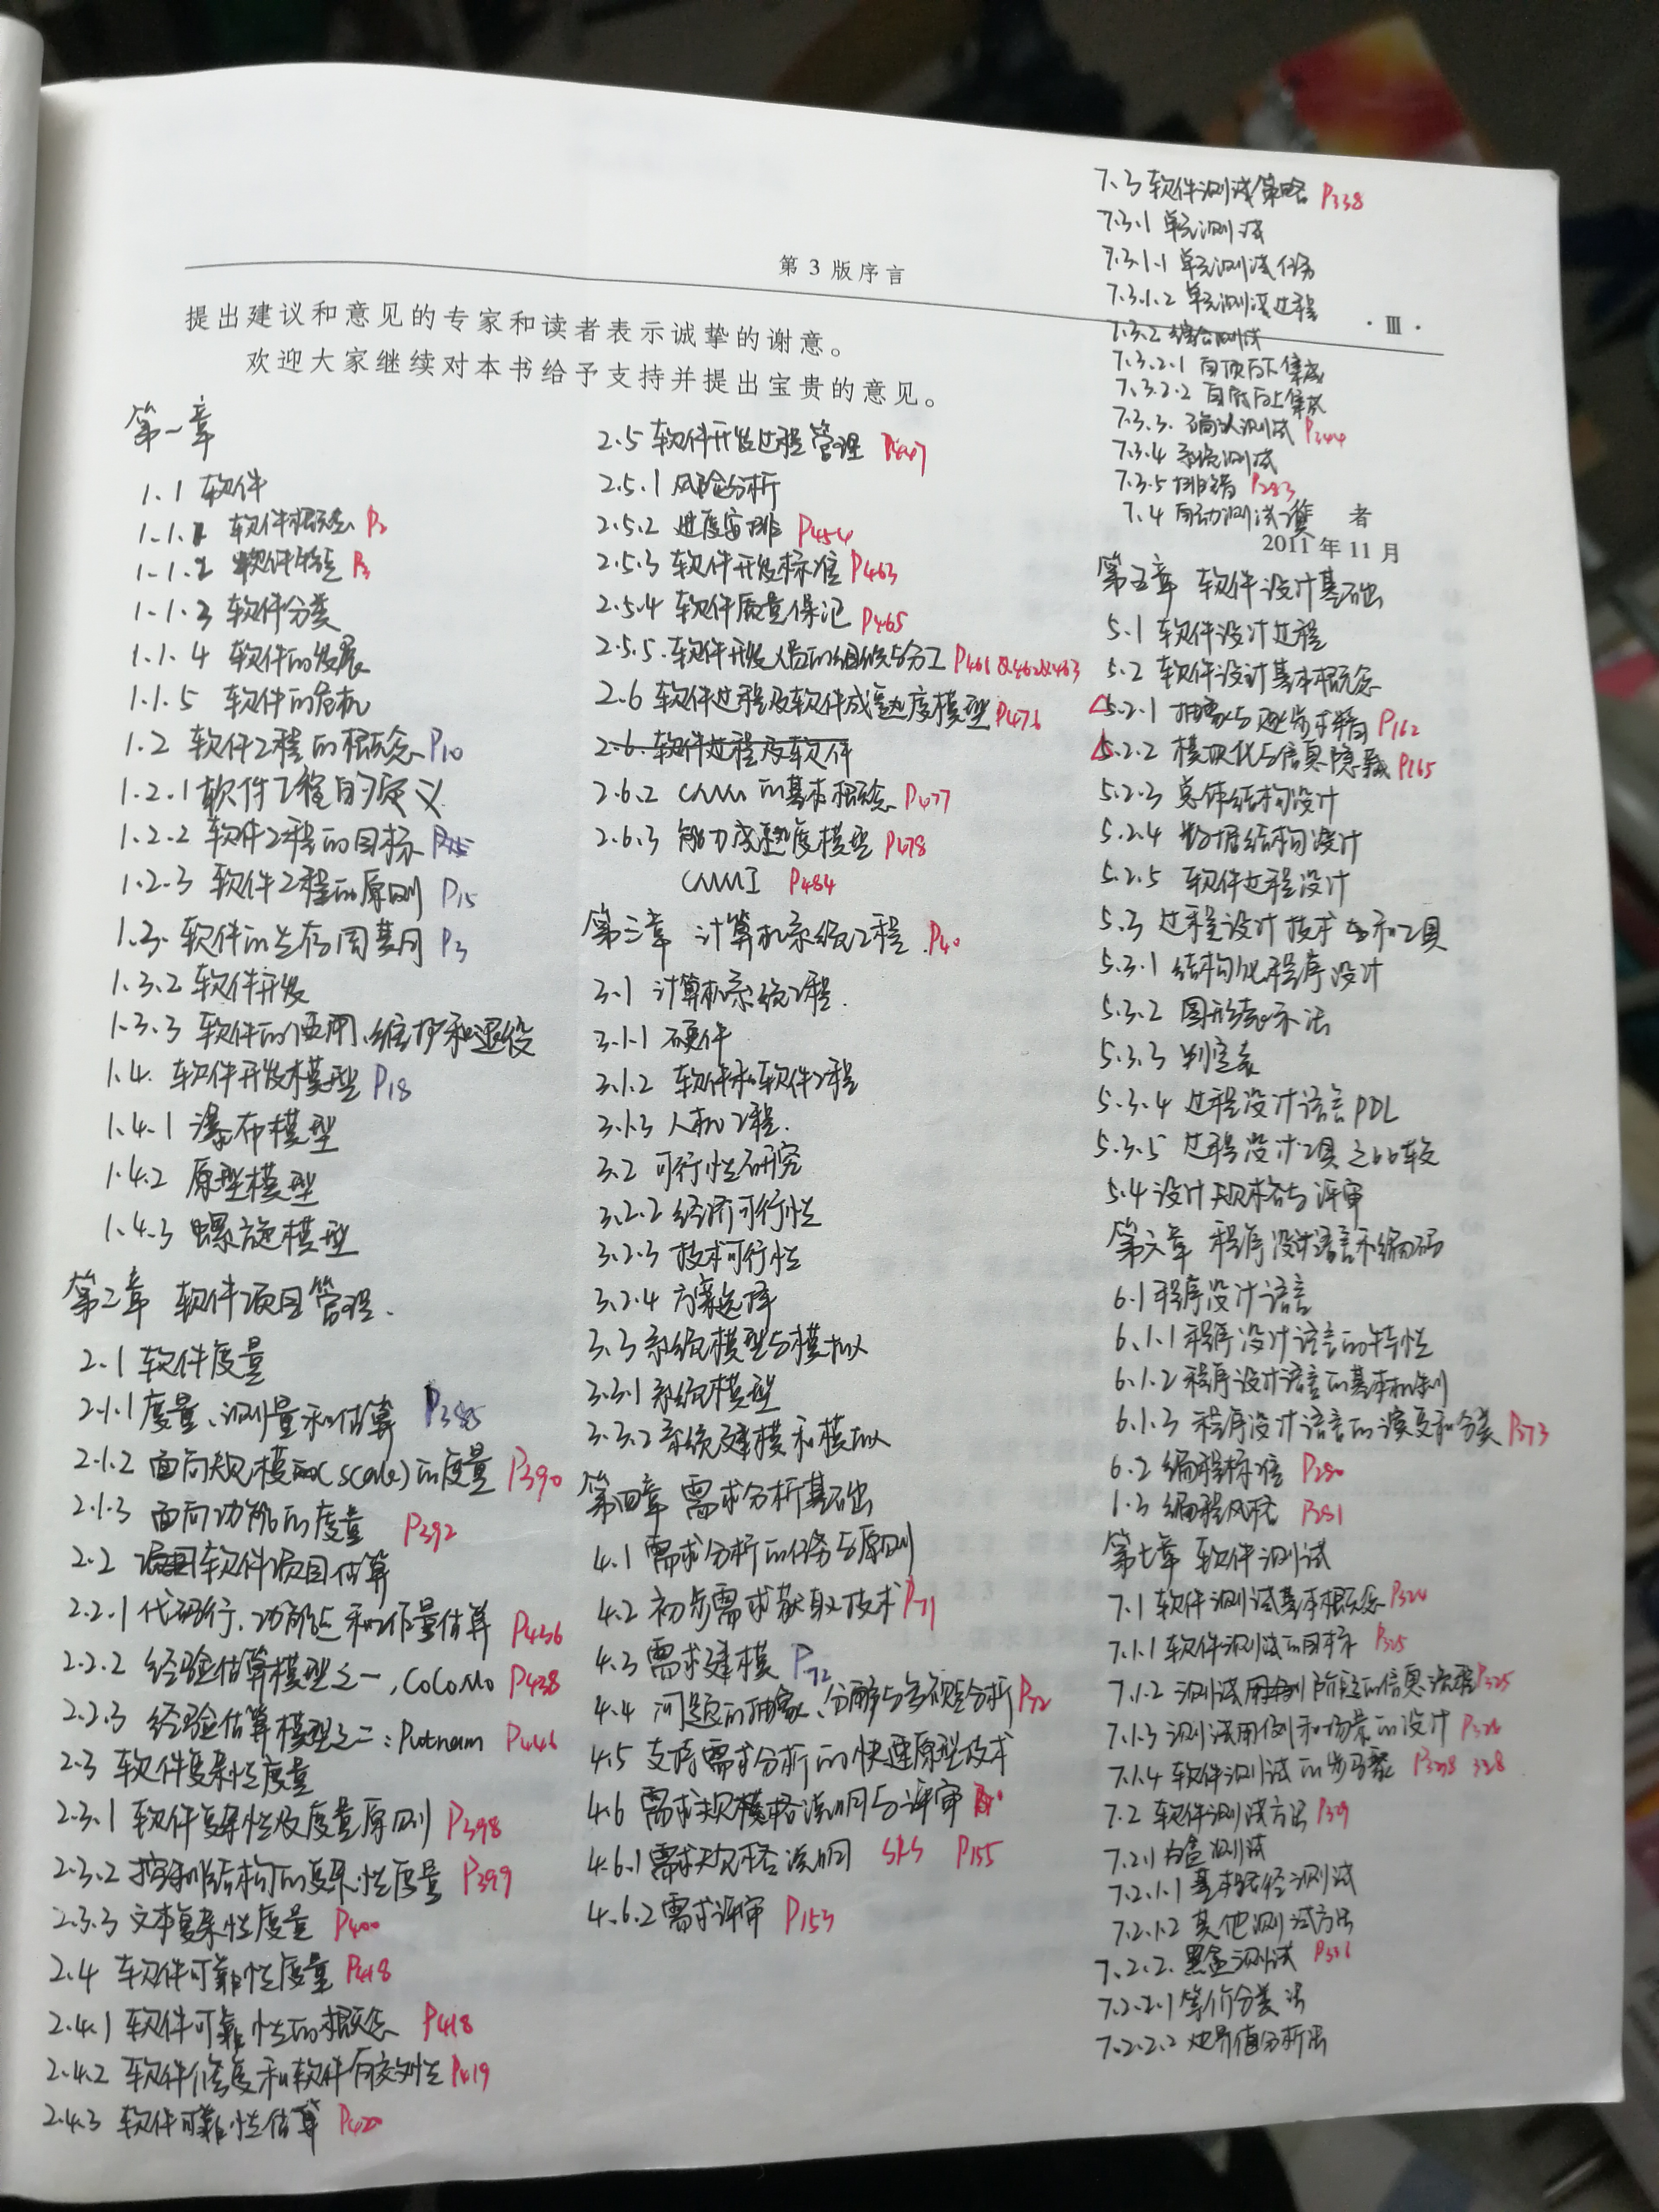 第 3 版序言
· III ·
提出建议和意见的专家和读者表示诚挚的谢意。
欢迎大家继续对本书给予支持并提出宝贵的意见。
第一章
1.1 软件
1.1.1 软件概念 P2
1.1.2 软件特征 P3
1.1.3 软件分类
1.1.4 软件的发展
1.1.5 软件的危机
1.2 软件工程的概念 P10
1.2.1 软件工程的定义
1.2.2 软件工程的目标
1.2.3 软件工程的原则 P15
1.3. 软件的生存周期 P3
1.3.2 软件开发
1.3.3 软件的使用、维护和退役
1.4. 软件开发模型 P18
1.4.1 瀑布模型
1.4.2 原型模型
1.4.3 螺旋模型
第二章 软件项目管理.
2.1 软件度量
2.1.1 度量、测量和估算 P385
2.1.2 面向规模(scale)的度量 P390
2.1.3 面向功能的度量 P392
2.2 软件项目估算
2.2.1 代码行、功能点和工作量估算 P436
2.2.2 经验估算模型之一, CoCoMo P438
2.2.3 经验估算模型之二: Putnam P446
2.3 软件复杂性度量
2.3.1 软件复杂性及度量原则 P398
2.3.2 控制结构的复杂性度量 P399
2.3.3 文本复杂性度量 P400
2.4 软件可靠性度量 P418
2.4.1 软件可靠性的概念 P418
2.4.2 软件修复和软件有效性 P419
2.4.3 软件可靠性估算 P420
2.5 软件开发过程管理 P447
2.5.1 风险分析
2.5.2 进度安排 P454
2.5.3 软件开发标准 P463
2.5.4 软件质量保证 P465
2.5.5. 软件开发人员的组织与分工 P461&462&463
2.6 软件过程及软件成熟度模型 P476
2.6. 软件过程及软件
2.6.2 CMM 的基本概念 P477
2.6.3 能力成熟度模型 P478
CMMI P484
第三章 计算机系统工程 P40
3.1 计算机系统工程.
3.1.1 硬件
3.1.2 软件和软件工程
3.1.3 人机工程.
3.2 可行性研究
3.2.2 经济可行性
3.2.3 技术可行性
3.2.4 方案选择
3.3 系统模型与模拟
3.3.1 系统模型
3.3.2 系统建模和模拟
第四章 需求分析基础
4.1 需求分析的任务与原则
4.2 初步需求获取技术 P71
4.3 需求建模 P72
4.4 问题的抽象、分解与多视点分析 P72
4.5 支持需求分析的快速原型技术
4.6 需求规格说明与评审
4.6.1 需求规格说明 SRS P155
4.6.2 需求评审 P153
7.3 软件测试策略 P338
7.3.1 单元测试
7.3.1.1 单元测试任务
7.3.1.2 单元测试过程
7.3.2 综合测试
7.3.2.1 自顶向下集成
7.3.2.2 自底向上集成
7.3.3. 确认测试 P344
7.3.4 系统测试
7.3.5 排错 P283
7.4 自动测试
者
2011 年 11 月
第五章 软件设计基础
5.1 软件设计过程
5.2 软件设计基本概念
△5.2.1 抽象与逐步求精 P162
△5.2.2 模块化与信息隐蔽 P165
5.2.3 总体结构设计
5.2.4 数据结构设计
5.2.5 软件过程设计
5.3 过程设计技术和工具
5.3.1 结构化程序设计
5.3.2 图形表示法
5.3.3 判定表
5.3.4 过程设计语言 PDL
5.3.5 过程设计工具之比较
5.4 设计规格与评审
第六章 程序设计语言和编码
6.1 程序设计语言
6.1.1 程序设计语言的特性
6.1.2 程序设计语言的基本机制
6.1.3 程序设计语言的演变和分类 P273
6.2 编程标准 P280
6.3 编程风格 P281
第七章 软件测试
7.1 软件测试基本概念 P324
7.1.1 软件测试的目标 P325
7.1.2 测试阶段的信息流程 P325
7.1.3 测试用例和场景的设计 P326
7.1.4 软件测试的步骤 P328 328
7.2 软件测试方法 P329
7.2.1 白盒测试
7.2.1.1 基本路径测试
7.2.1.2 其他测试方法
7.2.2. 黑盒测试 P336
7.2.2.1 等价分类法
7.2.2.2 边界值分析法